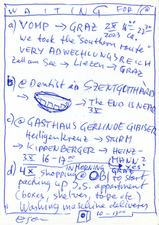 WAITING FOR/@
a) VOMP → GRAZ 25 4 23
2023 ca.
we took the "southern route"
VERY ABWECHSLUNGSREICH
Zell am See → Liezen → GRAZ
b) @ Dentist in SZENTGOTTHARD
→ The END IS NEAR
3X
c) @ GASTHAUS GERLINDE GIBISER
Heiligenkreuz → STURM
→ KIPPENBERGER → Heinz-
3X 16-17 MANN?
d) 4X Shopping @ OBI to start
packing up S.S. appointment
(boxes, shelves, tape etc.)
Washing machine deliveries
10-13